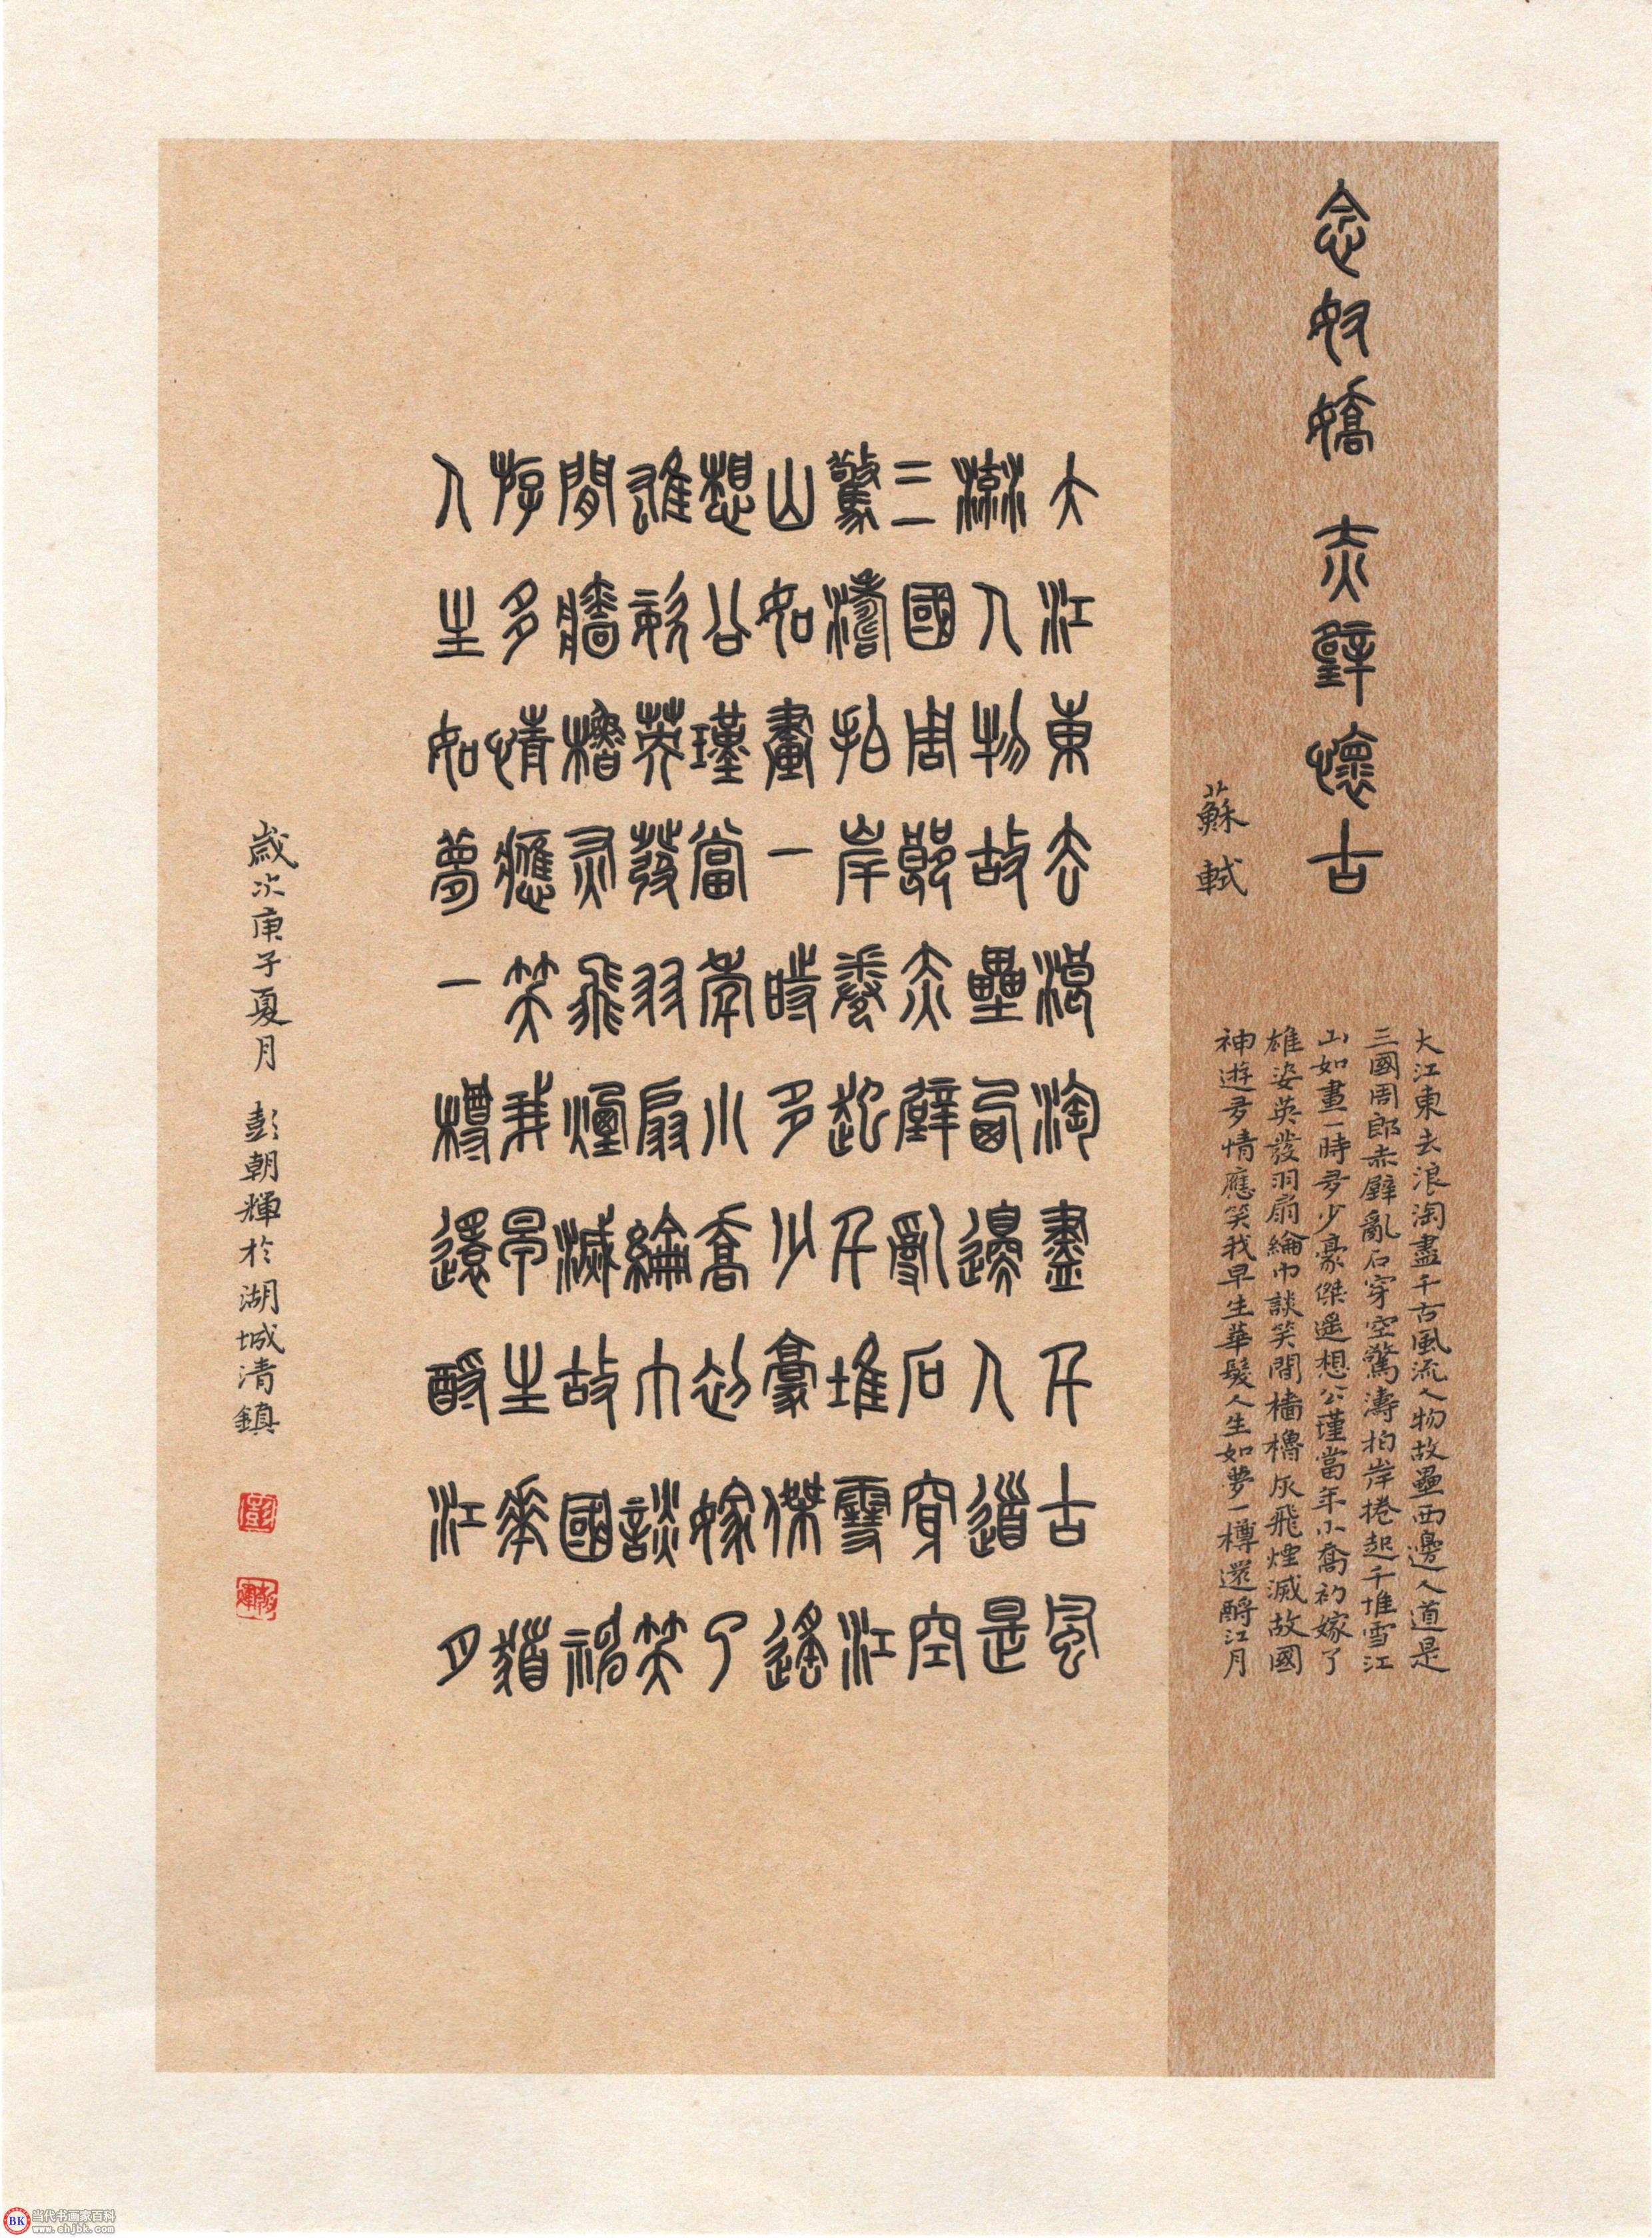 念奴嬌 赤壁懷古
蘇軾
大江東去浪淘盡千古風流人物故壘西邊人道是
三國周郎赤壁亂石穿空驚濤拍岸捲起千堆雪江
山如畫一時多少豪傑遙想公瑾當年小喬初嫁了
雄姿英發羽扇綸巾談笑間檣櫓灰飛煙滅故國
神遊多情應笑我早生華髮人生如夢一樽還酹江月
大江東去浪淘盡千古風
流人物故壘西邊人道是
三國周郎赤壁亂石穿空
驚濤拍岸卷起千堆雪江
山如畫一時多少豪傑遙
想公瑾當年小喬初嫁了
雄姿英發羽扇綸巾談笑
間檣櫓灰飛煙滅故國神
遊多情應笑我早生華髮
人生如夢一樽還酹江月
歲次庚子夏月 彭朝輝於湖城清鎮
彭
朝輝
BK 当代书画家百科
www.shjbk.com